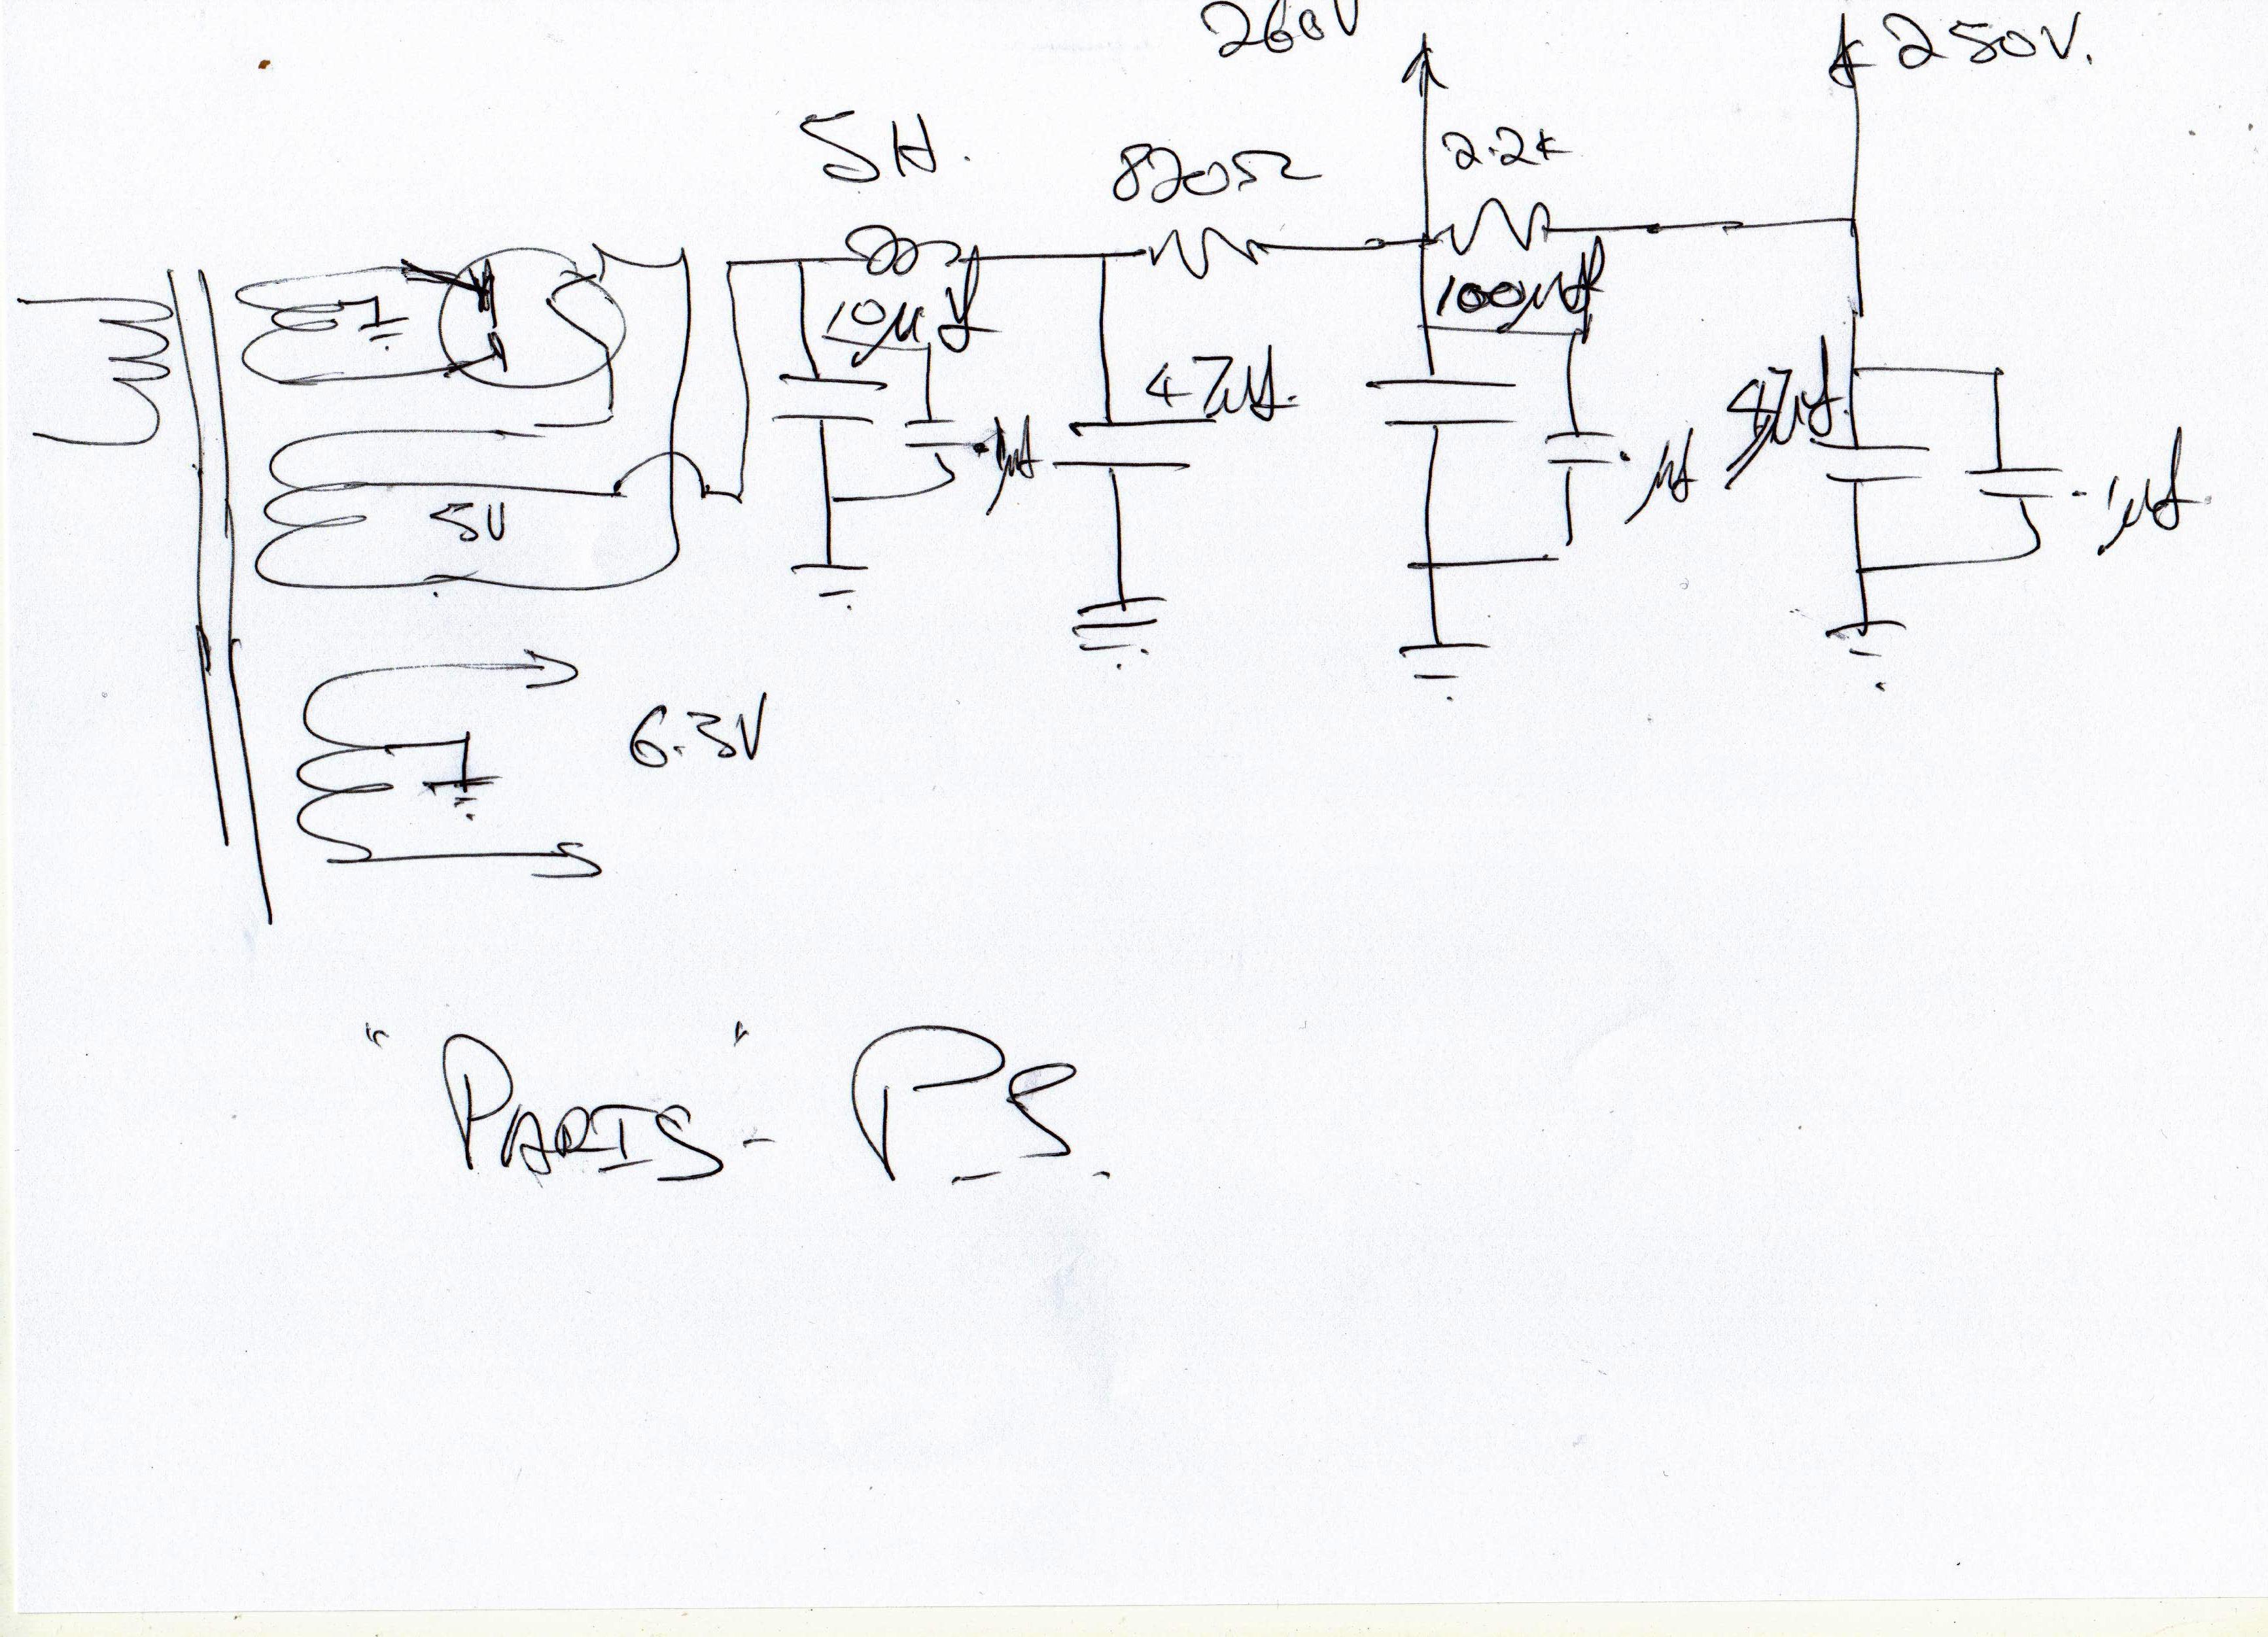 260V
250V.
5H.
820Ω
2.2K
10µf
100µf
47µf.
47µf.
.1µf
.1µf
.1µf
5V
6.3V
"PARIS"- P.S.